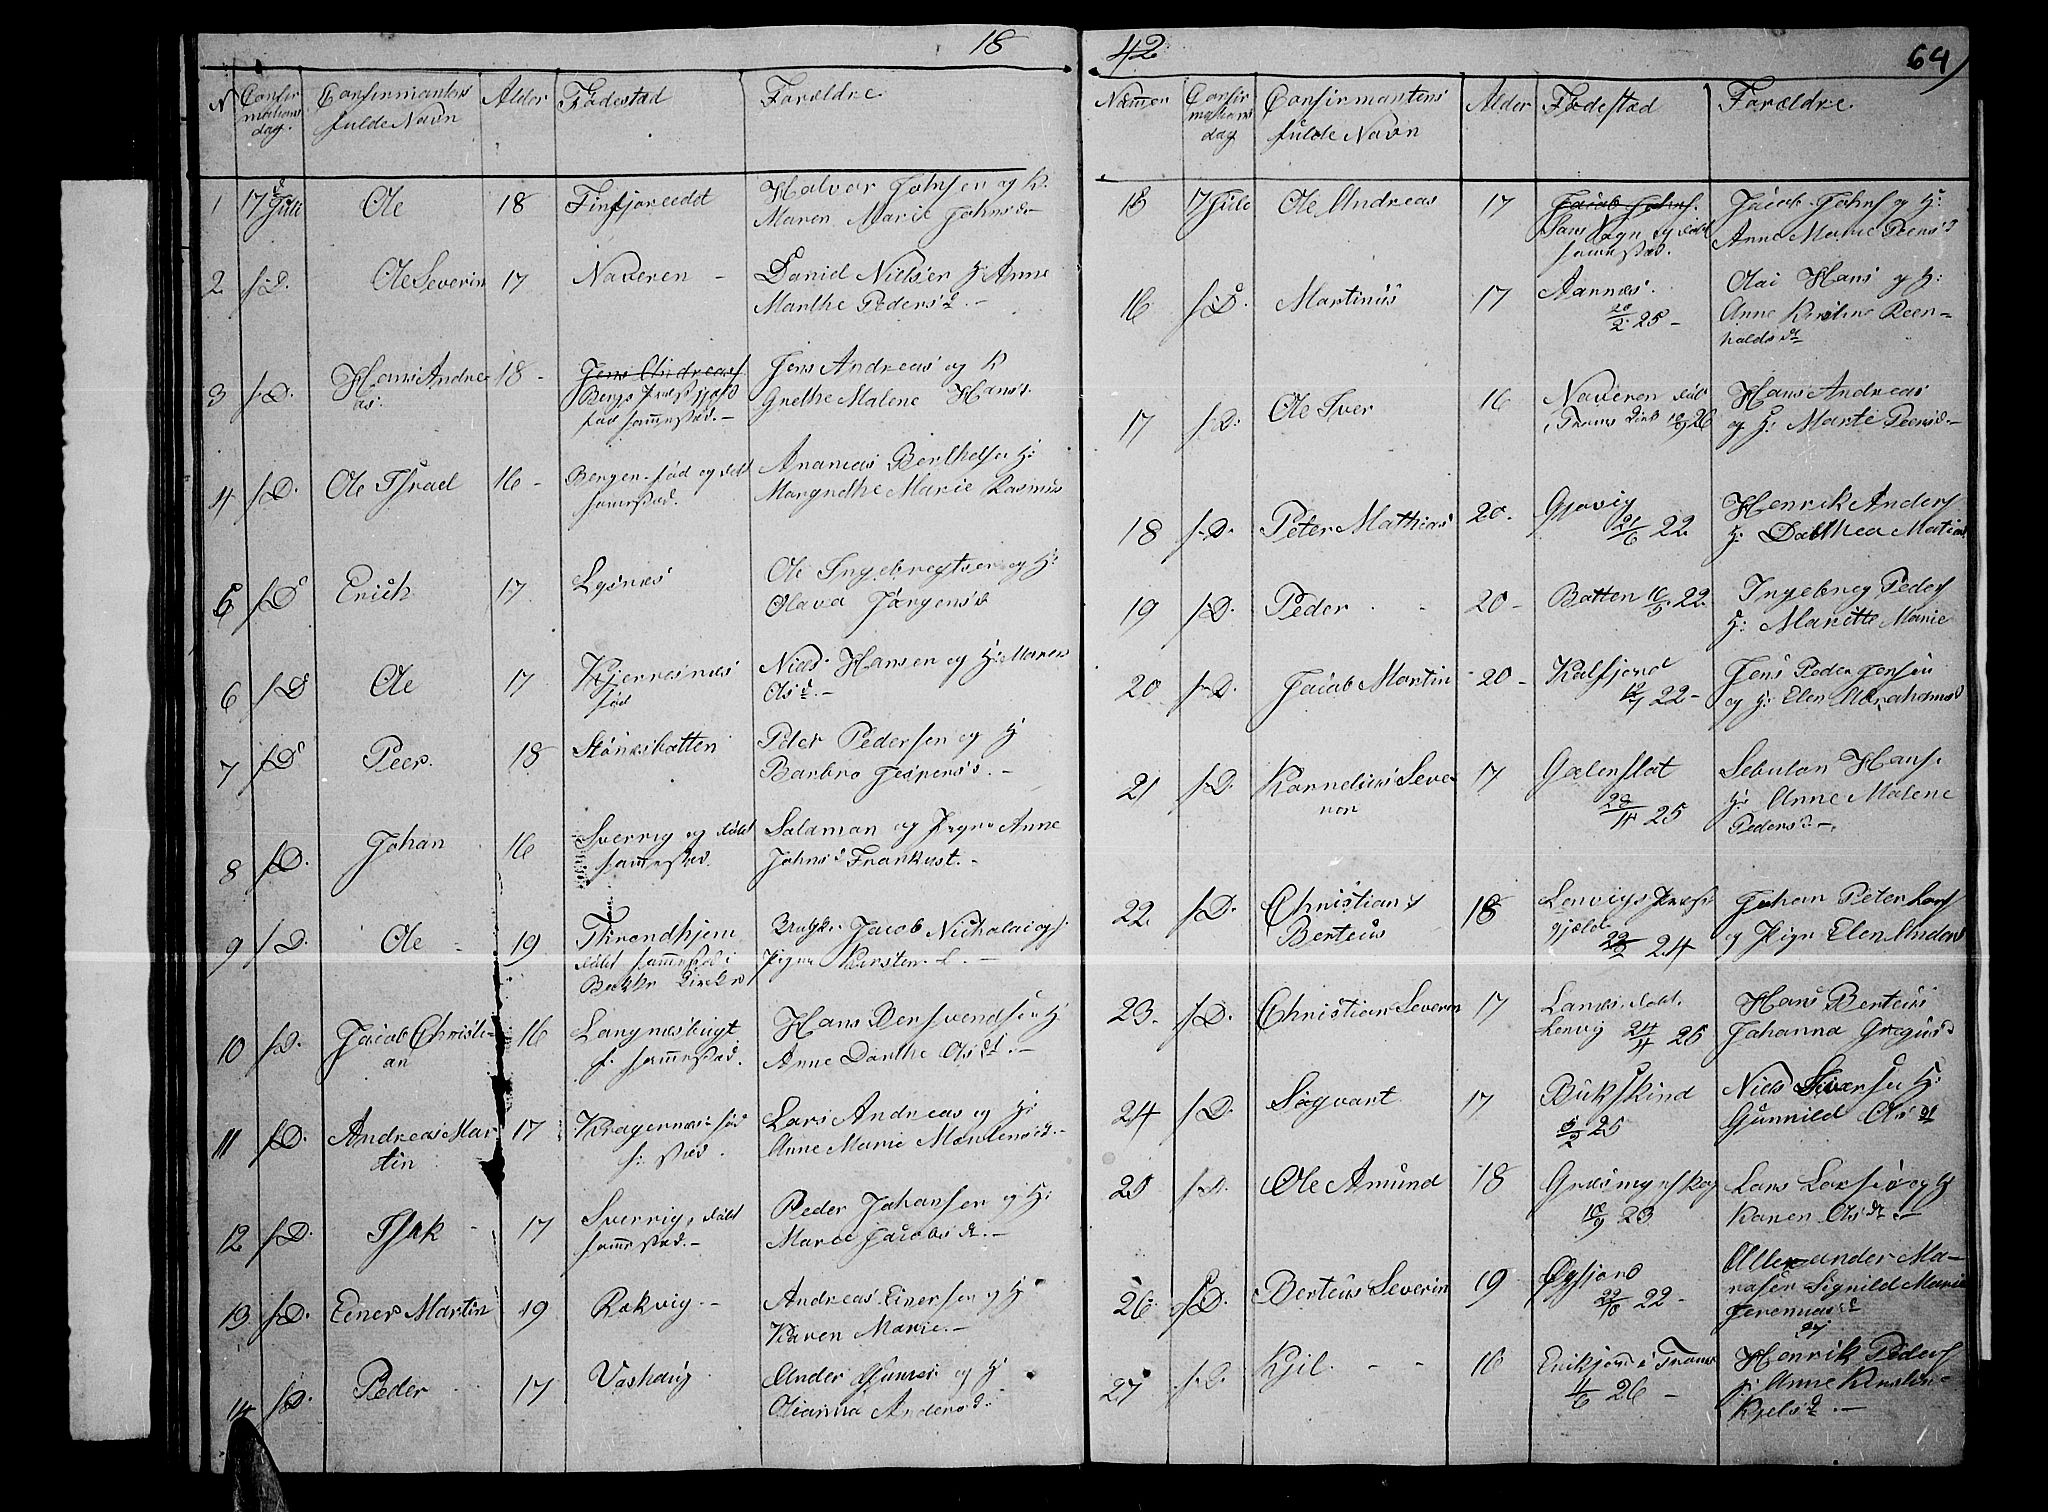 18
N Confirmations dag. Confirmantens fulde Navn Alder Fødestad Forældre
1 17d Juli Ole 18 Finfjoreidet Halvor Johnsen og K. Maren Marie Johnsd
2 s.D. Ole Severin 17 Naveren Daniel Nielsen H: Anne Marthe Pedersd.
3 s.D. Hans Andreas 18 Jens Andreas Bergs Præstgjæld fød sammestad. Jens Andreas og K Grethe Malene Hansd
4 s.D. Ole Israel 16 Bergen fød og døbt sammestad. Ananias Berthelsen H: Margrethe Marie Rasmus
5 s.D Erich 17 Lysnæs Ole Ingebregtsen og H: Olava Jørgensd
6 s.D Ole 17 Kjerresnæs fød Niels Hansen og H: Maren Olsd.
7 s.D Peer. 18 Stønesbotten Peter Pedersen og H Barbro Jespersd.
8 s.D. Johan 16 Sverrig og døbt sammestad. Salamon og Pigen Anne Johnsd Frankust.
9 s.D. Ole 19 Throndhjem døbt sammestad i Bakke Kirke Jacob Nicholai og Pigen Kirsten
10 s.D. Jacob Christian 16 Langnæsbugt f. sammestad. Hans Bersvendsen H. Anne Dorthe Olsd.
11 s.D. Andreas Martin 17 Kragernæs fød s: stad. Lars Andreas og H: Anne Marie Mortensd.
12 s.D. Isak 17 Sverrig, døbt sammestad. Peder Johansen og H: Maret Jacobsd.
13 s.D. Einer Martin 19 Rakvig. Andreas Einersen og H Karen Marie.
14 s.D. Peder 17 Vashaug Ander Gunner og H Olianna Andersd
42
64
Numer Confirmations dag Confirmantens fulde Navn Alder Fødestad Forældre.
15 17 Juli Ole Andreas 17 Jacob Johns. sammestad. Jacob Johns og H: Anne Marie Peersd
16 s.D. Martinus 17 Aarnæs. 20/2 25 Olai Hans og H: Anne Kirstine Reenholdsd
17 s.D. Ole Iver 16 Naveren døbt i Troms Kirke 26 Hans Andreas og H: Marte Peersd.
18 s.D. Peter Mathias 20 Gjøvig 21/6 22 Henrik Anders H: Dorthea Matias
19 s.D. Peder 20 Botten 16/5 22. Ingebreg Peders H: Maritte Marie
20 s.D. Jacob Martin 20 Kalfjord 22 Jens Peder Jensen og H: Elen Abrahamsd
21 s.D. Kornelius Severon 17 Galenslat 29/11 25 Sebulon Hans. H: Anne Malene Pedersd.
22. s.D. Christian Berteus 18 Lenvigs Præstegjæld 24 Johan Peter Lars og Pigen Elen Anders
23. s.D. Christian Severin 17 Lanes døbt. Lenvig 24/4 25 Hans Berteus Johanna Gregusd
24 s.D. Sigvart 17 Bukskind 5/2 25 Niels Siversen H: Gunnild Olsd
25 s.D. Ole Amund 18 Græsmyrskog 10/9 23 Lars Larsen og H Karen Olsd.
26 s.D. Berteus Severin 19 Øyfjord 22/10 22 Allexander Manasen Signild Marie Jeremiasd
27 s.D Kjil. 16 Erikjord i Troms 4/6 26 Henrik Peders H: Anne Kirstine Kjelsd.